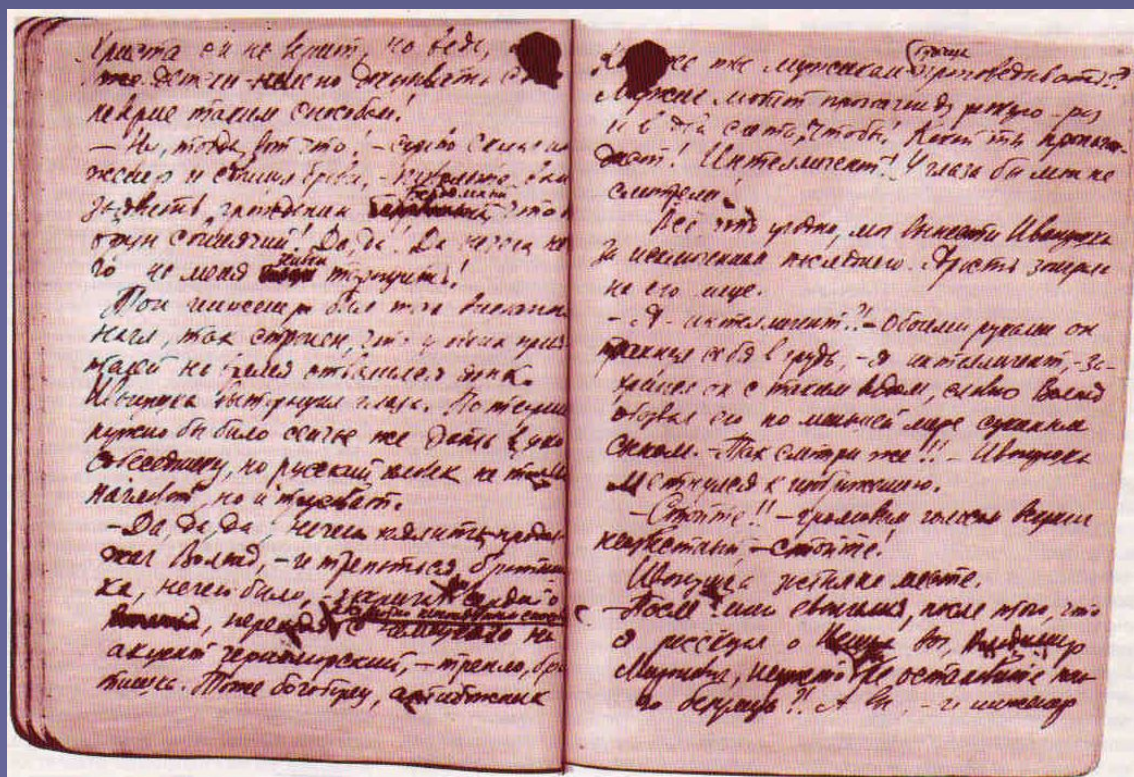 Христа он не верит, но ведь,
же детски доказывать
неврие таким способом!
– Ну, тогда, вот что! – сурово сказал ин
женер и сдвинул брови, – позвольте вам
заявить, гражданин Бездомный, что
врун собачий! Да, да! Да нечего на
го не меня таращить!
Тон инженера был так внезапно
нагл, так странен, что у обоих прия
телей на время отвалился язык.
Иванушка вытаращил глаза. По теории
нужно бы было сейчас же дать в ухо
собеседнику, но русский человек не только
нагловат, но и трусоват.
– Да, да, да, нечего пялить, продол
жал Воланд, – и трепаться, братиш
ка, нечего было, – закричал сердито
на
акцент черноморский, – трепло, бра
тишка. Тоже богоборец, антибожник
же ты мужикам будешь проповедывать?!
Мужик любит пропаганду резкую – раз
и в два счета, чтобы! Какой ты пропаган
дист! Интеллигент! У глаза бы мои не
смотрели!
Все что угодно, мог вынести Иванушка
за исключением последнего. Ярость заиграла
на его лице.
– Я – интеллигент?! – Обоими руками он
трахнул себя в грудь, – я интеллигент, – за-
хрипел он с таким видом, словно Воланд
обозвал его по меньшей мере сукиным
сыном. – Так смотри же!! – Иванушка
метнулся к изображению.
– Стойте!! – громовым голосом
неизвестный – стойте!
Иванушка застыл на месте.
– После моего евангелия, после того, что
я рассказал о вы, Владимир
Миронович, неужто не остановите
го безумца?! А вы, – и инженер